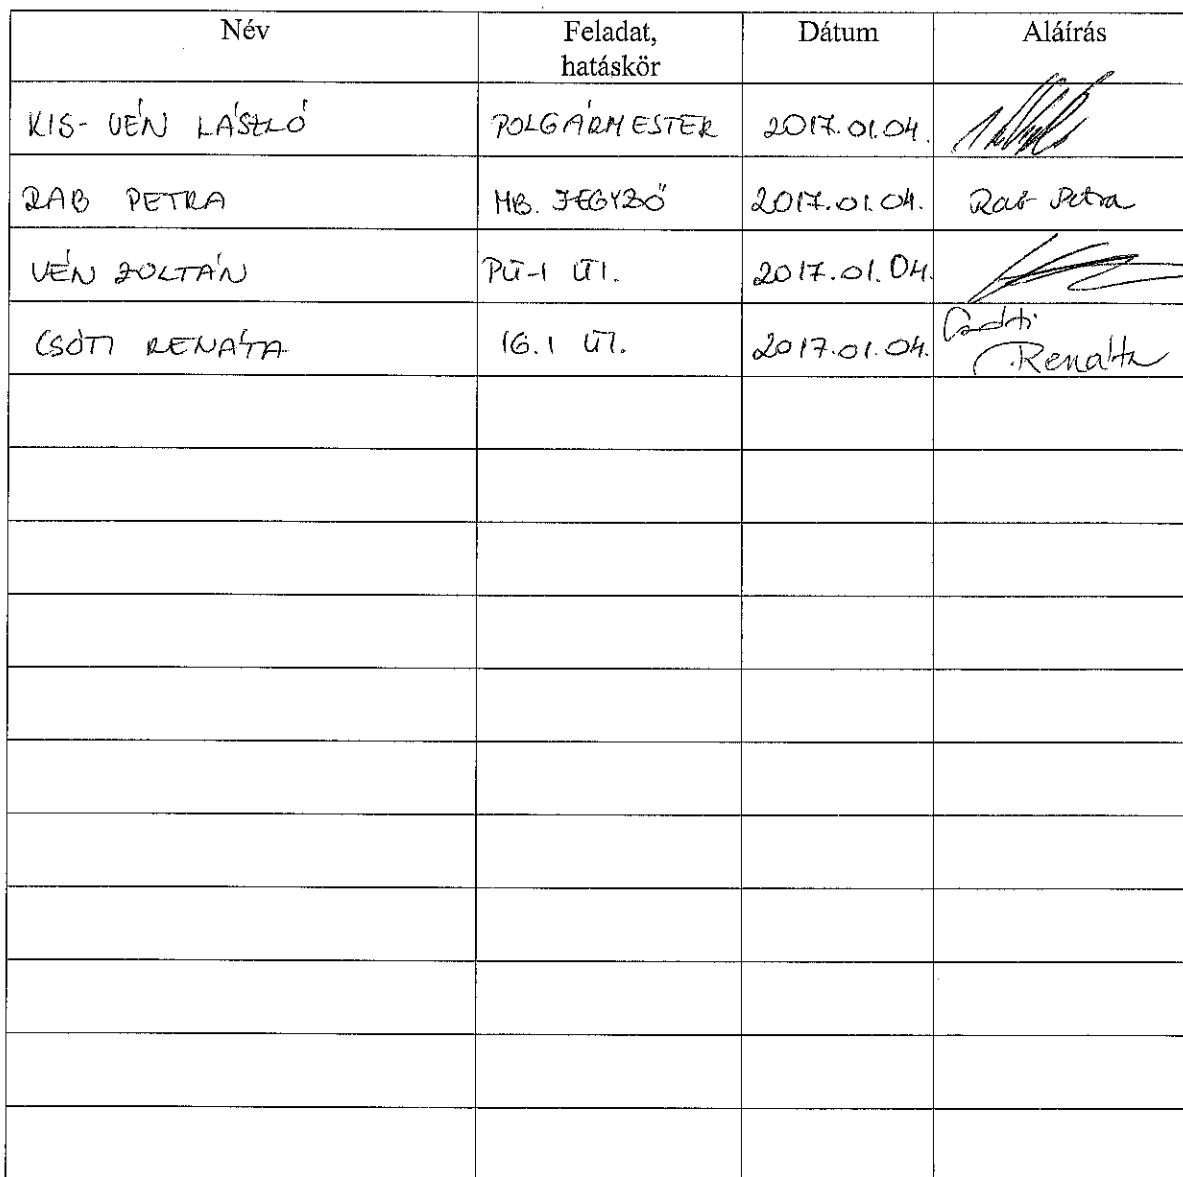 Név Feladat, Dátum Aláírás
hatáskör
KIS-VÉN LÁSZLÓ POLGÁRMESTER 2017.01.04.
RAB PETRA MB. JEGYZŐ 2017.01.04. Rab Petra
VÉN ZOLTÁN PÜ-I ÜI. 2017.01.04.
CSÓTI RENÁTA IG.I ÜI. 2017.01.04. Csóti
Renáta